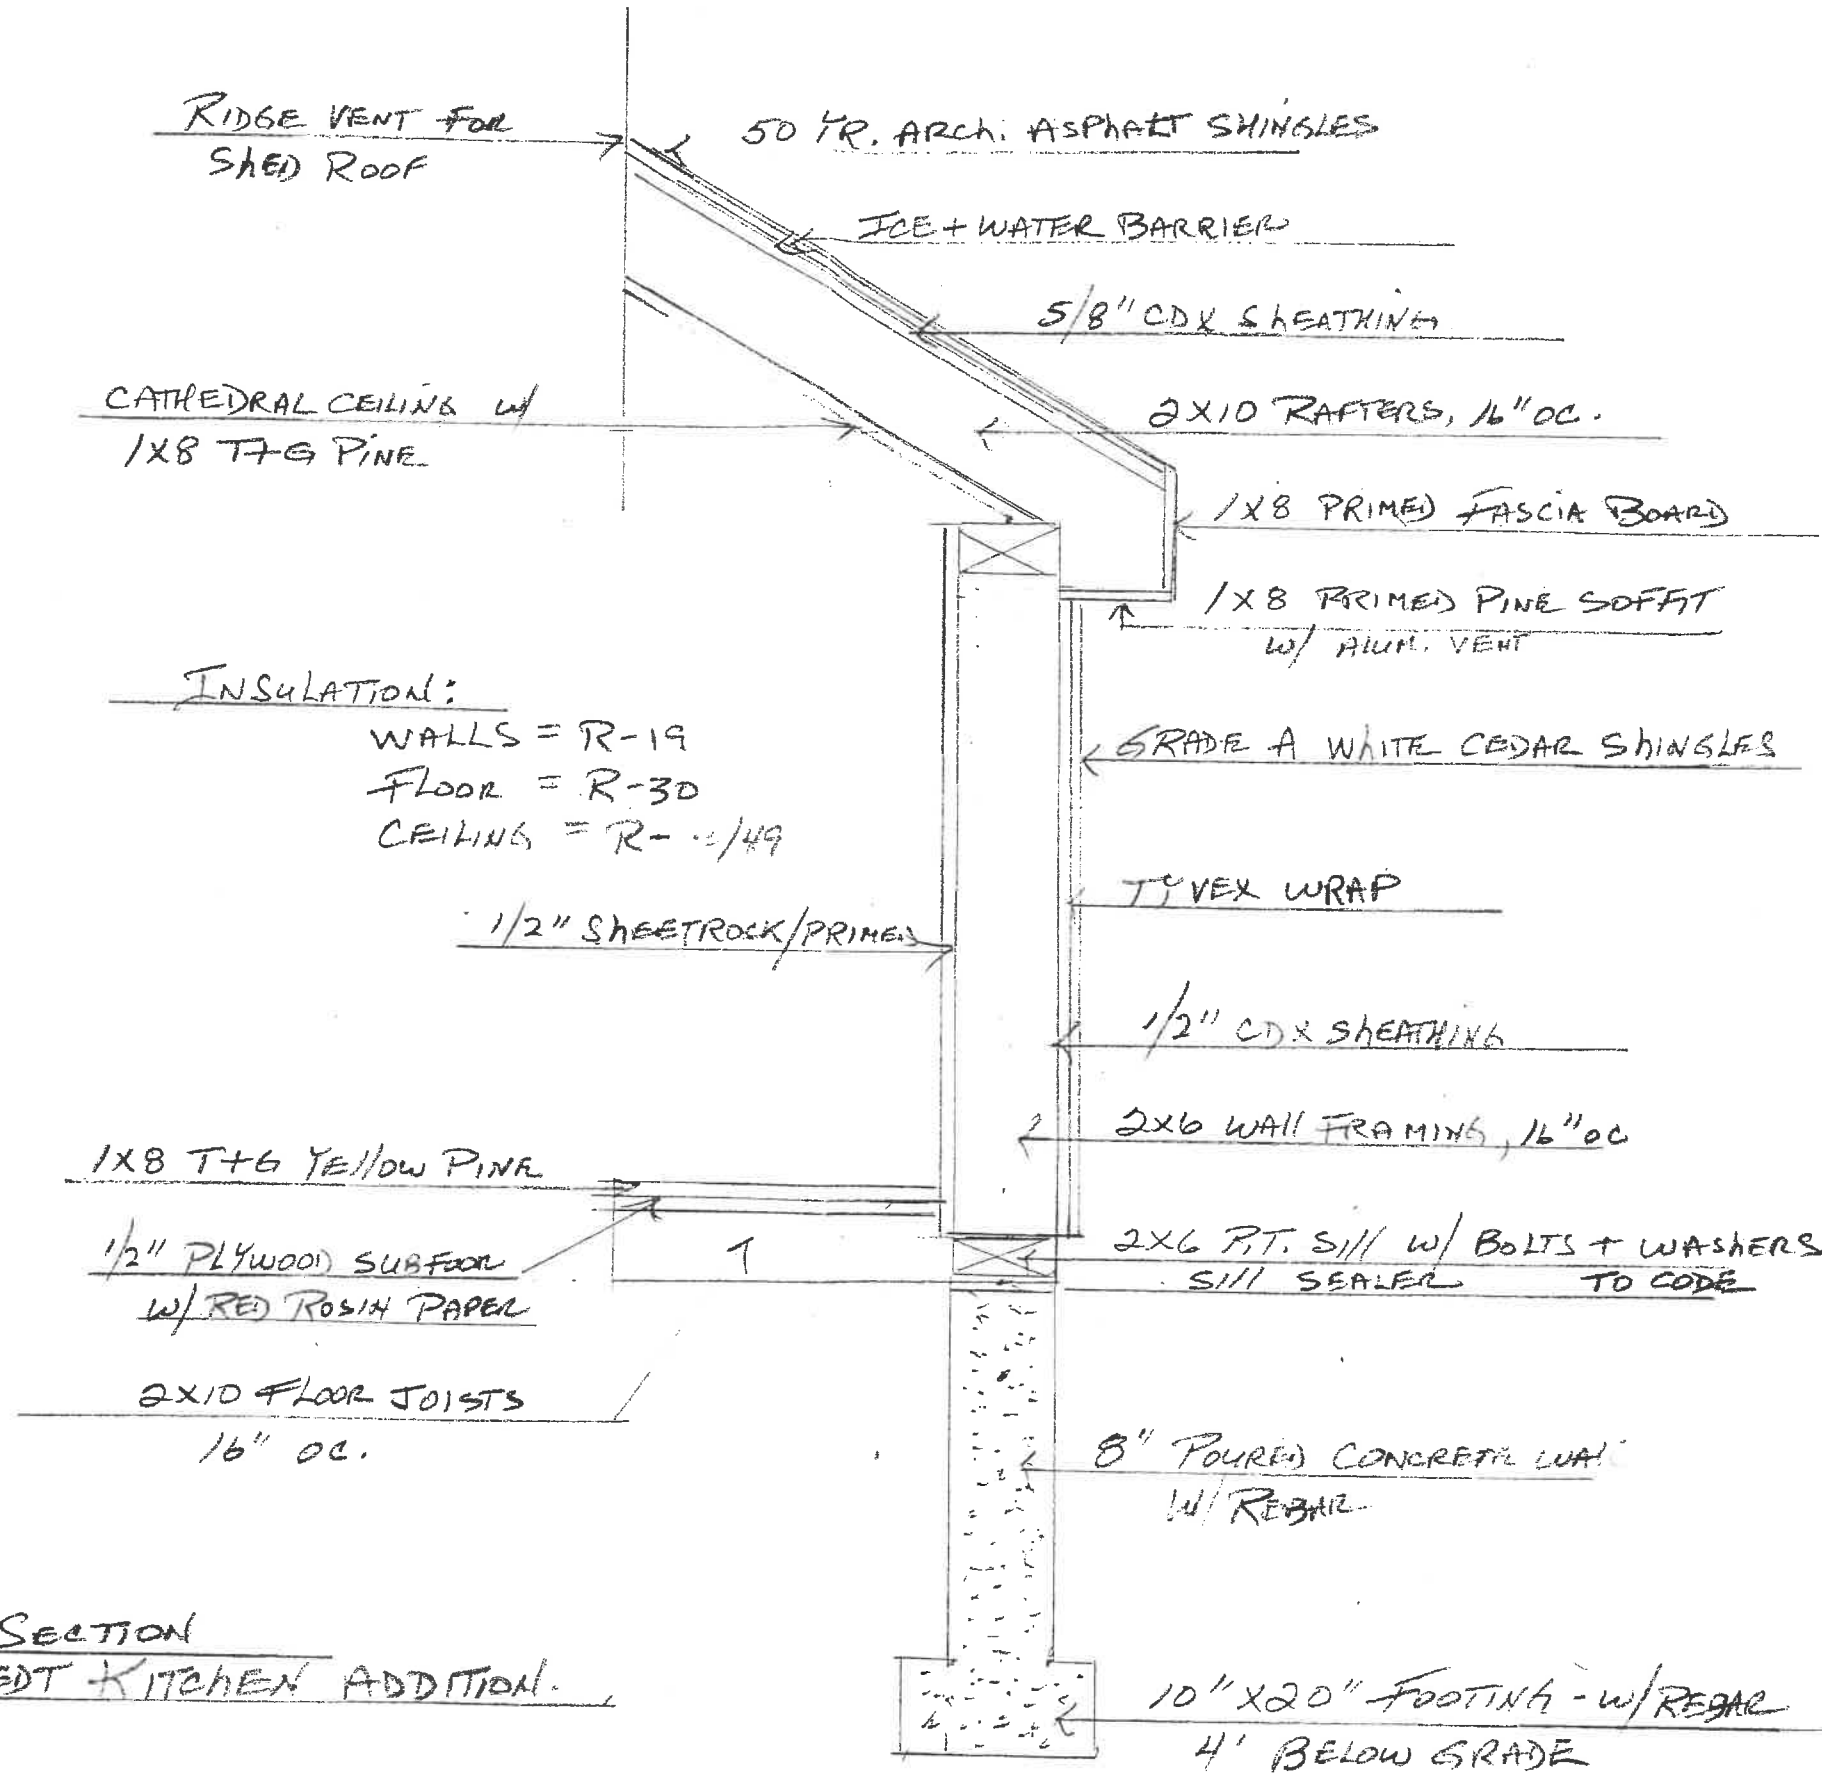 RIDGE VENT FOR
SHED ROOF
50 YR. ARCH. ASPHALT SHINGLES
ICE + WATER BARRIER
5/8" CDX SHEATHING
CATHEDRAL CEILING W/
1X8 T+G PINE
2X10 RAFTERS, 16" OC.
1X8 PRIMED FASCIA BOARD
1X8 PRIMED PINE SOFFIT
W/ ALUM. VENT
INSULATION:
WALLS = R-19
FLOOR = R-30
CEILING = R- /49
GRADE A WHITE CEDAR SHINGLES
TYVEX WRAP
1/2" SHEETROCK/PRIMED
1/2" CDX SHEATHING
2X6 WALL FRAMING, 16" OC
1X8 T+G YELLOW PINE
1/2" PLYWOOD SUBFOOR
W/ RED ROSIN PAPER
2X6 P.T. SILL W/ BOLTS + WASHERS
SILL SEALER TO CODE
2X10 FLOOR JOISTS
16" OC.
8" POURED CONCRETE WAL
W/ REBAR
SECTION
EDT KITCHEN ADDITION.
10" X 20" FOOTING - W/ REBAR
4' BELOW GRADE